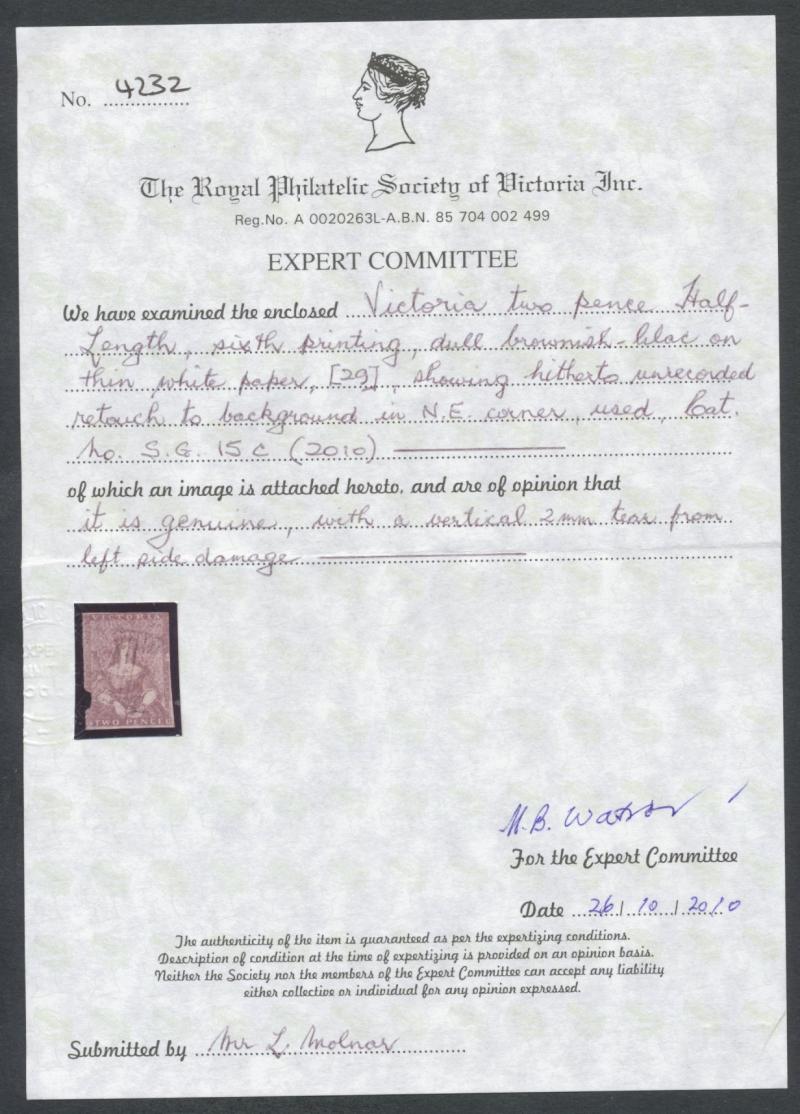 No. 4232
The Royal Philatelic Society of Victoria Inc.
Reg.No. A 0020263L-A.B.N. 85 704 002 499
EXPERT COMMITTEE
We have examined the enclosed Victoria two pence Half-
Length, sixth printing, dull brownish-lilac on
thin white paper, [29], showing hitherto unrecorded
retouch to background in N.E. corner, used, Cat.
No. S.G. 15c (2010)
of which an image is attached hereto, and are of opinion that
it is genuine, with a vertical 2mm tear from
left side damage
VICTORIA
TWO PENCE
M.B. Watson
For the Expert Committee
Date 26/10/2010
The authenticity of the item is guaranteed as per the expertizing conditions.
Description of condition at the time of expertizing is provided on an opinion basis.
Neither the Society nor the members of the Expert Committee can accept any liability
either collective or individual for any opinion expressed.
Submitted by Mr L. Molnar